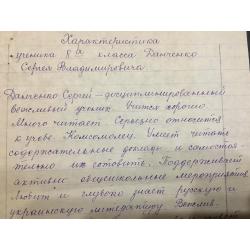 Характеристика
ученика 8а класса Данченко
Сергея Владимировича.
Данченко Сергей – дисциплинированный
вежливый ученик. Учится хорошо
Много читает Серьезно относится
к учебе. Комсомолец. Умеет читать
содержательные доклады и самостоя-
тельно их готовить. Поддерживает
активно общешкольные мероприятия
Любит и глубоко знает русскую и
украинскую литературу. Вежлив.